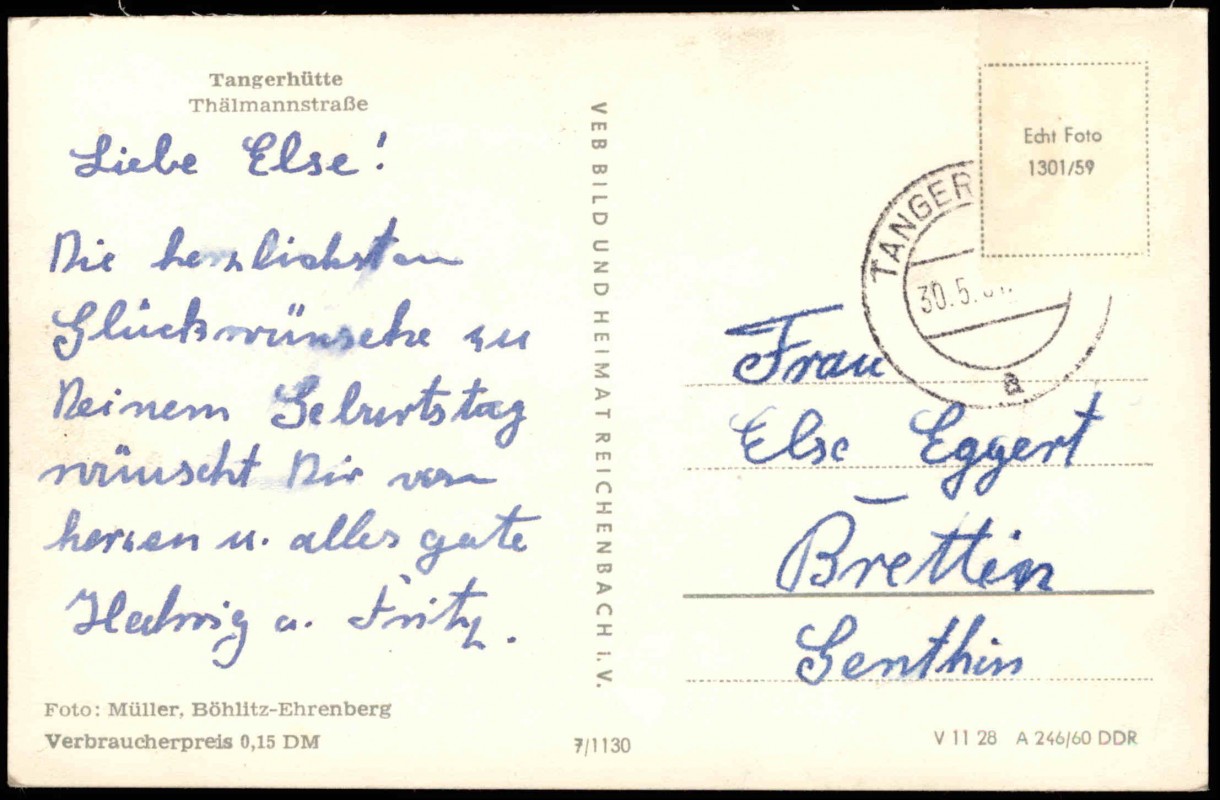 Tangerhütte
Thälmannstraße
Liebe Else!
Die herzlichsten
Glückwünsche zu
Deinem Geburtstag
wünscht Dir von
herzen u. alles gute
Hedwig u. Fritz.
Foto: Müller, Böhlitz-Ehrenberg
Verbraucherpreis 0,15 DM
VEB BILD UND HEIMAT REICHENBACH i. V.
7/1130
Echt Foto
1301/59
TANGER
30.5.
a
Frau
Else Eggert
Brettin
Genthin
V 11 28 A 246/60 DDR